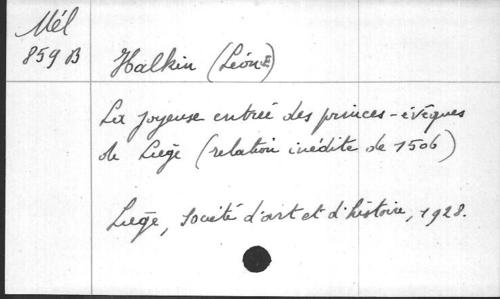 Mél
859 B
Halkin (Léon-E)
La joyeuse entrée des princes-évêques
de Liège (relation inédite de 1506)
Liège, Société d'art et d'histoire, 1928.